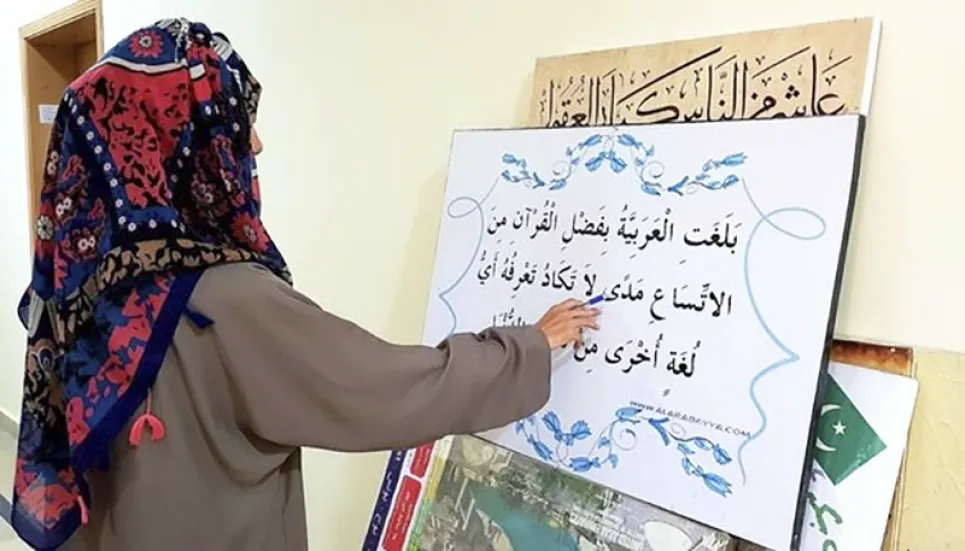 عاشر من الناس كبار العقول
بَلَغَتِ الْعَرَبِيَّةُ بِفَضْلِ الْقُرْآنِ مِنَ
الاتِّسَاعِ مَدًى لاَ تَكَادُ تَعْرِفُهُ أَيُّ
لُغَةٍ أُخْرَى مِنْ
WWW.ALARABEYYA.COM